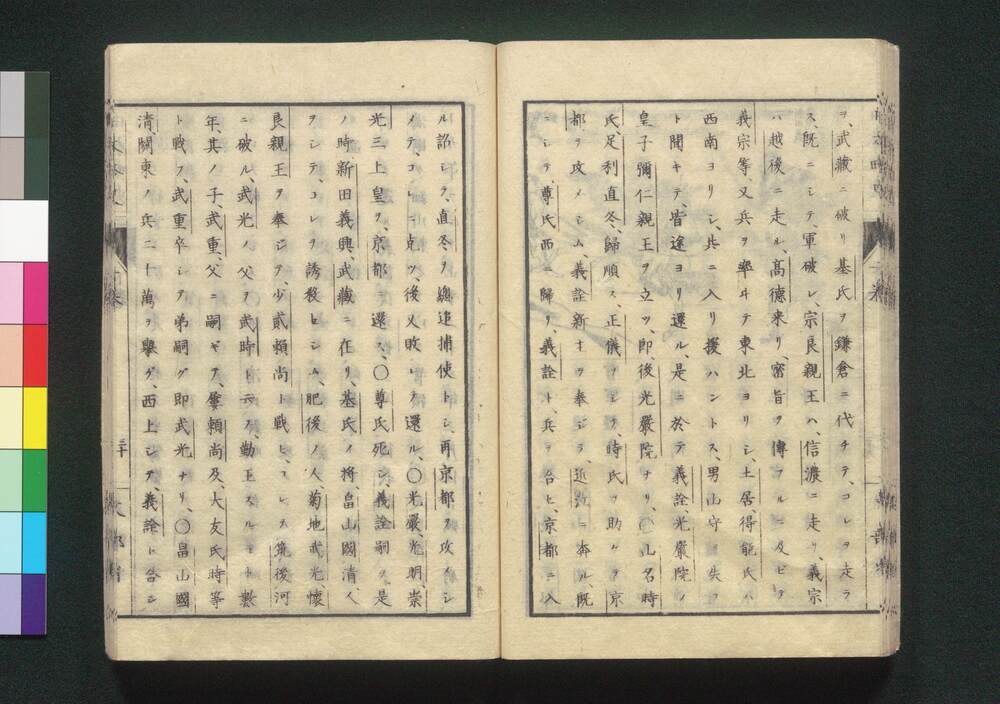 ヲ、武藏ニ破リ基氏ヲ鎌倉ニ代チテ、コレヲ走ラ
ス、既ニシテ、軍破レ、宗良親王ハ、信濃ニ走リ、義宗
ハ越後ニ走ル、高德来リ、密旨ヲ傳フルニ及ビテ
義宗等、又兵ヲ率ヰテ東北ヨリシ、土居、得能氏ハ
西南ヨリシ、共ニ入リ援ハントス、男山守ヲ失フ
ト聞キテ、皆途ヨリ還ル、是ニ於テ義詮、光嚴院ノ
皇子彌仁親王ヲ立ツ、即、後光嚴院ナリ、〇山名時
氏、足利直冬、歸順ス、正儀ヲシテ、時氏ヲ助ケテ京
都ヲ攻メシム、義詮新主ヲ奉ジテ、近江ニ奔ル、既
ニシテ、尊氏西ニ歸リ、義詮ト、兵ヲ合ヒ、京都ニ入
ル詔シテ、直冬ヲ總追捕使トシ、再京都ヲ攻メシ
メテ、コレニ克ツ、後又敗レテ還ル、〇光嚴、光明、崇
光三上皇ヲ、京都ニ還ス、〇尊氏死シ、義詮嗣グ、是
ノ時、新田義興、武藏ニ在リ、基氏ノ將、畠山國清、人
ヲシテ、コレヲ誘殺セシム、肥後ノ人、菊地武光、懷
良親王ヲ奉ジテ、少貳頼尚ト戰ヒ、コレヲ筑後河
ニ破ル、武光ノ父ヲ武時ト云フ、勤王スルコト數
年、其ノ子、武重、父ニ嗣ギテ、屢頼尚及、大友氏時等
ト戰フ、武重卒シテ弟嗣グ即武光ナリ、〇畠山國
清、關東ノ兵二十萬ヲ擧ゲ、西上シテ、義詮ト合シ
三十
文部省